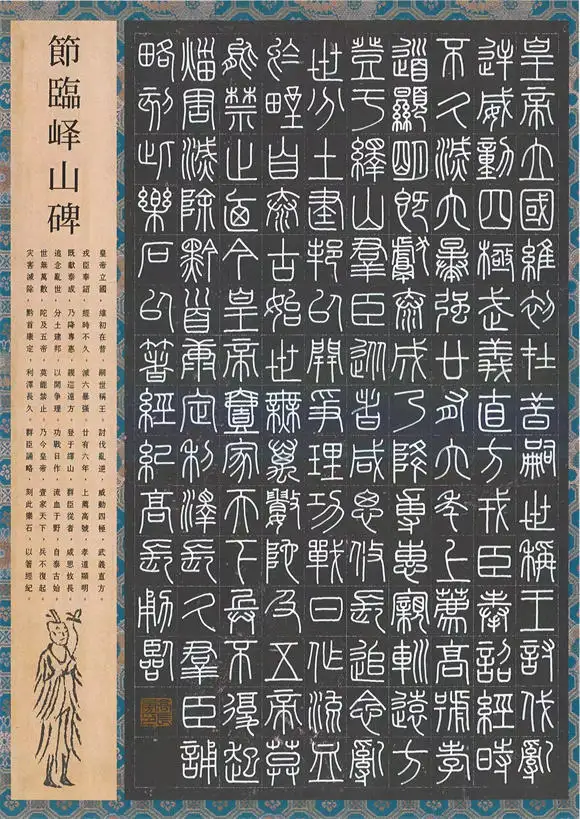 皇帝立國維初在昔嗣世稱王討伐亂
逆威動四極武義直方戎臣奉詔經時
不久滅六暴強廿有六年上薦高號孝
道顯明既獻泰成乃降專惠親巡遠方
登于繹山羣臣從者咸思攸長追念亂
世分土建邦以開爭理功戰日作流血
於野自泰古始世無萬數陀及五帝莫
能禁止廼今皇帝壹家天下兵不復起
災害滅除黔首康定利澤長久羣臣誦
略刻此樂石以箸經紀高長
節臨峄山碑
皇帝立國，維初在昔，嗣世稱王，討伐亂逆，威動四極，武義直方，
戎臣奉詔，經時不久，滅六暴强，廿有六年，上薦高號，孝道顯明
既獻泰成，乃降專惠，親巡遠方，登于繹山，群臣從者，咸思攸長
追念亂世，分土建邦，以開爭理，功戰日作，流血于野，自泰古始
世無萬數，陀及五帝，莫能禁止，乃今皇帝，壹家天下，兵不復起
灾害滅除，黔首康定，利澤長久，群臣誦略，刻此樂石，以箸經紀。